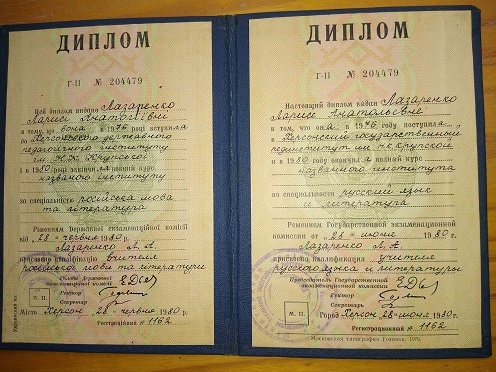 ДИПЛОМ
Г-II № 204479
Цей диплом видано Лазаренко
Ларисі Анатоліївні
в тому, що вона в 1976 році вступила
до Херсонського державного
педагогічного інституту
ім. Н.К. Крупської
і в 1980 році закінчила повний курс
названого інституту
за спеціальністю російська мова
та література
Рішенням Державної екзаменаційної комісії
від „28“ червня 1980 р.
Лазаренко Л. А.
присвоєно кваліфікацію вчителя
російської мови та літератури
Голова Державної
екзаменаційної комісії
Ректор
Секретар
М. П.
Місто Херсон 28 червня 1980 р.
Реєстраційний № 1162
ДИПЛОМ
Г-II № 204479
Настоящий диплом выдан Лазаренко
Ларисе Анатольевне
в том, что она в 1976 году поступила
в Херсонский государственный
пединститут им. Н.К. Крупской
и в 1980 году окончила полный курс
названного института
по специальности русский язык
и литература
Решением Государственной экзаменационной
комиссии от „28“ июня 1980 г.
Лазаренко Л. А.
присвоена квалификация учителя
русского языка и литературы
Председатель Государственной
экзаменационной комиссии
Ректор
Секретарь
М. П.
Город Херсон 28 июня 1980 г.
Регистрационный № 1162
Московская типография Гознака. 1976.